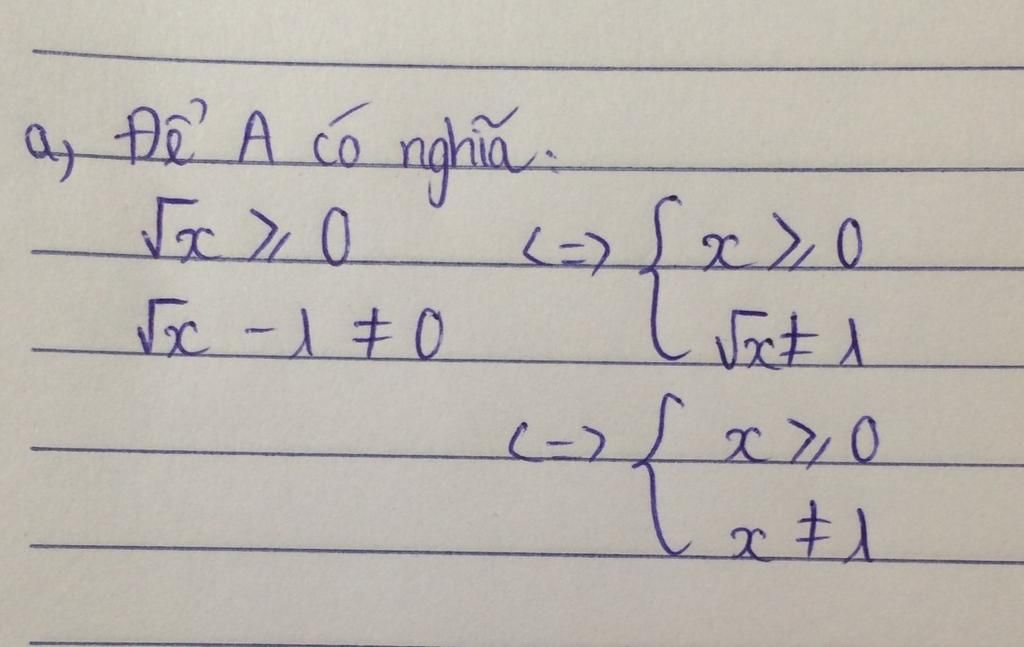 a, Để A có nghĩa:
√x ⩾ 0 <=> { x ⩾ 0
√x - 1 ≠ 0 √x ≠ 1
<=> { x ⩾ 0
x ≠ 1